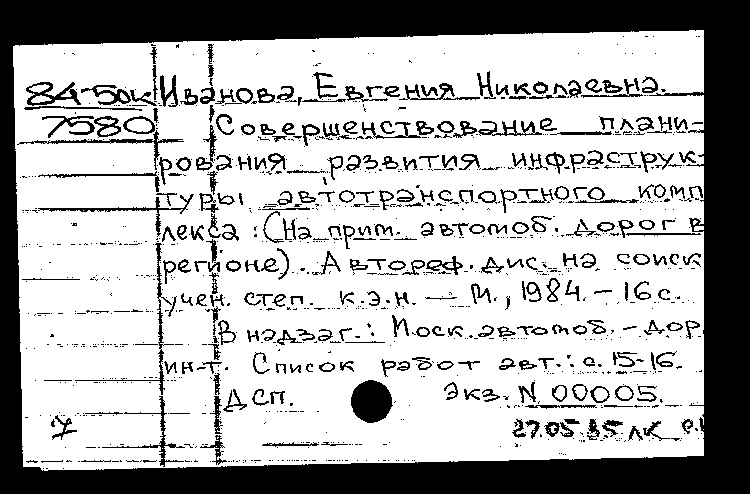 84-50к Иванова, Евгения Николаевна.
7580 Совершенствование плани-
рования развития инфраструк-
туры автотранспортного комп
лекса : (На прим. автомоб. дорог в
регионе). Автореф. дис. на соиск
учен. степ. к.э.н. — М., 1984. – 16 с.
В надзаг.: Моск. автомоб. – дор.
ин-т. Список работ авт.: с. 15-16.
ДСП. Экз. N 00005.
27.05.85 ЛК